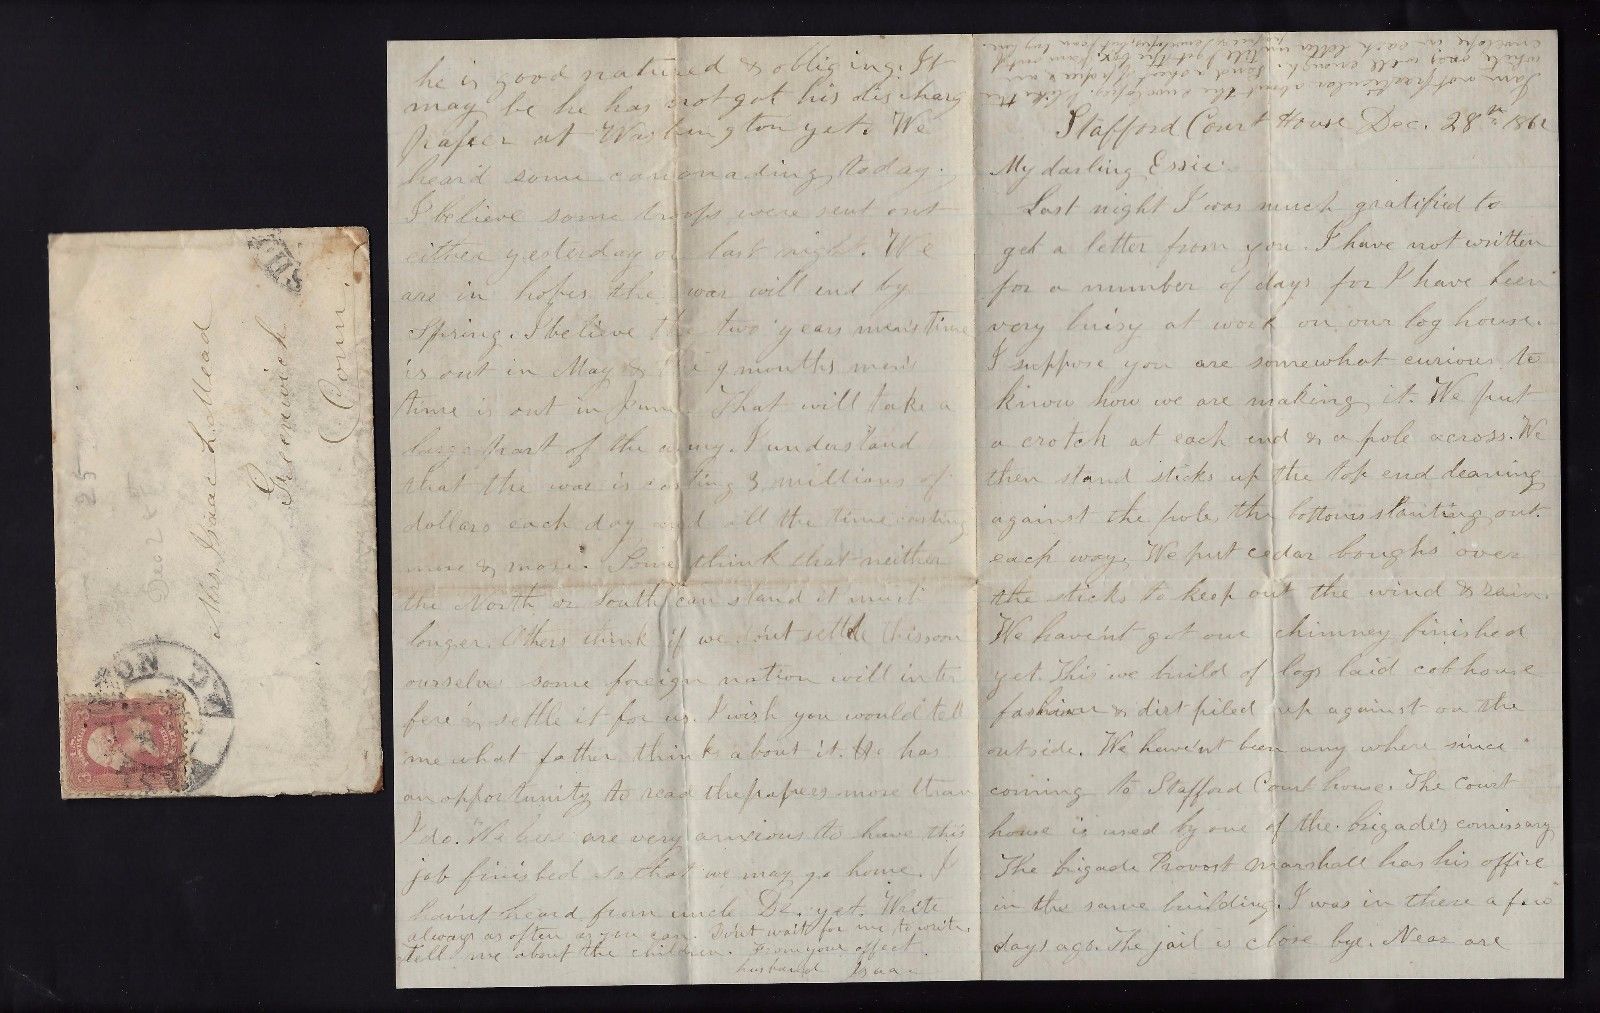 Mrs. Isaac L. Mead
Greenwich
Conn.
Dec 28
25
he is good natured & obliging. It
may be he has not got his discharg
papers at Washington yet. We
heard some canonading today.
I believe some troops were sent out
either yesterday or last night. We
are in hopes the war will end by
Spring. I believe the two years men's time
is out in May & the 9 months men's
time is out in June. That will take a
large part of the army. I understand
that the war is costing 3 millions of
dollars each day and all the time costing
more & more. Some think that neither
the North or South can stand it much
longer. Others think if we dont settle this soon
ourselves some foreign nation will inter
fere & settle it for us. I wish you would tell
me what father thinks about it. He has
an opportunity to read the papers more than
I do. We here are very anxious to have this
job finished so that we may go home. I
havn't heard from uncle De. yet. Write
always as often as you can. Don't wait for me to write.
tell me about the children. From your affect.
husband Isaac
I am not particular about the envelopes. I like the
white ones well enough. Send a sheet of paper & an
envelope in each letter until I get the box.
Stafford Court House Dec. 28th 1862
My darling Essie.
Last night I was much gratified to
get a letter from you. I have not written
for a number of days for I have been
very buisy at work on our log house.
I suppose you are somewhat curious to
know how we are making it. We put
a crotch at each end & a pole across. We
then stand sticks up the top end leaning
against the pole, the bottoms slanting out
each way. We put cedar boughs over
the sticks to keep out the wind & rain.
We havent got our chimney finished
yet. This we build of logs laid cob house
fashion & dirt piled up against on the
outside. We havent been any where since
coming to Stafford Court house. The Court
house is used by one of the brigade's comissary
The brigade Provost marshall has his office
in the same building. I was in there a few
days ago. The jail is close bye. Near are